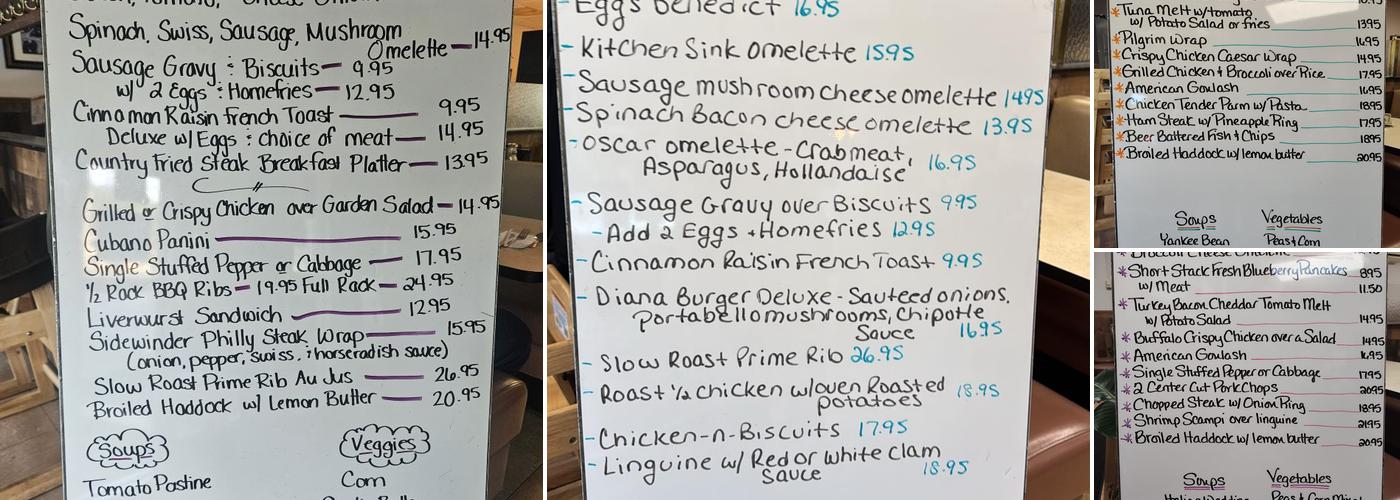 Spinach, Swiss, Sausage, Mushroom
Omelette — 14.95
Sausage Gravy & Biscuits — 9.95
w/ 2 Eggs & Homefries — 12.95
Cinnamon Raisin French Toast — 9.95
Deluxe w/ Eggs & choice of meat — 14.95
Country Fried Steak Breakfast Platter — 13.95
Grilled or Crispy Chicken over Garden Salad — 14.95
Cubano Panini — 15.95
Single Stuffed Pepper or Cabbage — 17.95
1/2 Rack BBQ Ribs — 19.95 Full Rack — 24.95
Liverwurst Sandwich — 12.95
Sidewinder Philly Steak Wrap — 15.95
(onion, pepper, swiss, & horseradish sauce)
Slow Roast Prime Rib Au Jus — 26.95
Broiled Haddock w/ Lemon Butter — 20.95
Soups Veggies
Tomato Pastine Corn
- Eggs Benedict 16.95
- Kitchen Sink Omelette 15.95
- Sausage mushroom cheese omelette 14.95
- Spinach Bacon cheese omelette 13.95
- Oscar omelette - Crabmeat,
Asparagus, Hollandaise 16.95
- Sausage Gravy over Biscuits 9.95
- Add 2 Eggs + Homefries 12.95
- Cinnamon Raisin French Toast 9.95
- Diana Burger Deluxe - Sauteed onions,
Portabello mushrooms, Chipotle
Sauce 16.95
- Slow Roast Prime Rib 26.95
- Roast 1/2 chicken w/oven Roasted
potatoes 18.95
- Chicken-n-Biscuits 17.95
- Linguine w/ Red or white clam
Sauce 18.95
*Tuna Melt w/tomato
w/ Potato Salad or fries 13.95
*Pilgrim Wrap 16.95
*Crispy Chicken Caesar Wrap 14.95
*Grilled Chicken & Broccoli over Rice 17.95
*American Goulash 16.95
*Chicken Tender Parm w/ Pasta 18.95
*Ham Steak w/ Pineapple Ring 17.95
*Beer Battered Fish & Chips 18.95
*Broiled Haddock w/ lemon butter 20.95
Soups Vegetables
Yankee Bean Peas & Corn
*Short Stack Fresh Blueberry Pancakes 8.95
w/ Meat 11.50
*Turkey Bacon Cheddar Tomato Melt
w/ Potato Salad 14.95
*Buffalo Crispy Chicken over a Salad 14.95
*American Goulash 16.95
*Single Stuffed Pepper or Cabbage 17.95
*2 Center Cut Pork Chops 20.95
*Chopped Steak w/ Onion Ring 18.95
*Shrimp Scampi over linguine 21.95
*Broiled Haddock w/ lemon butter 20.95
Soups Vegetables